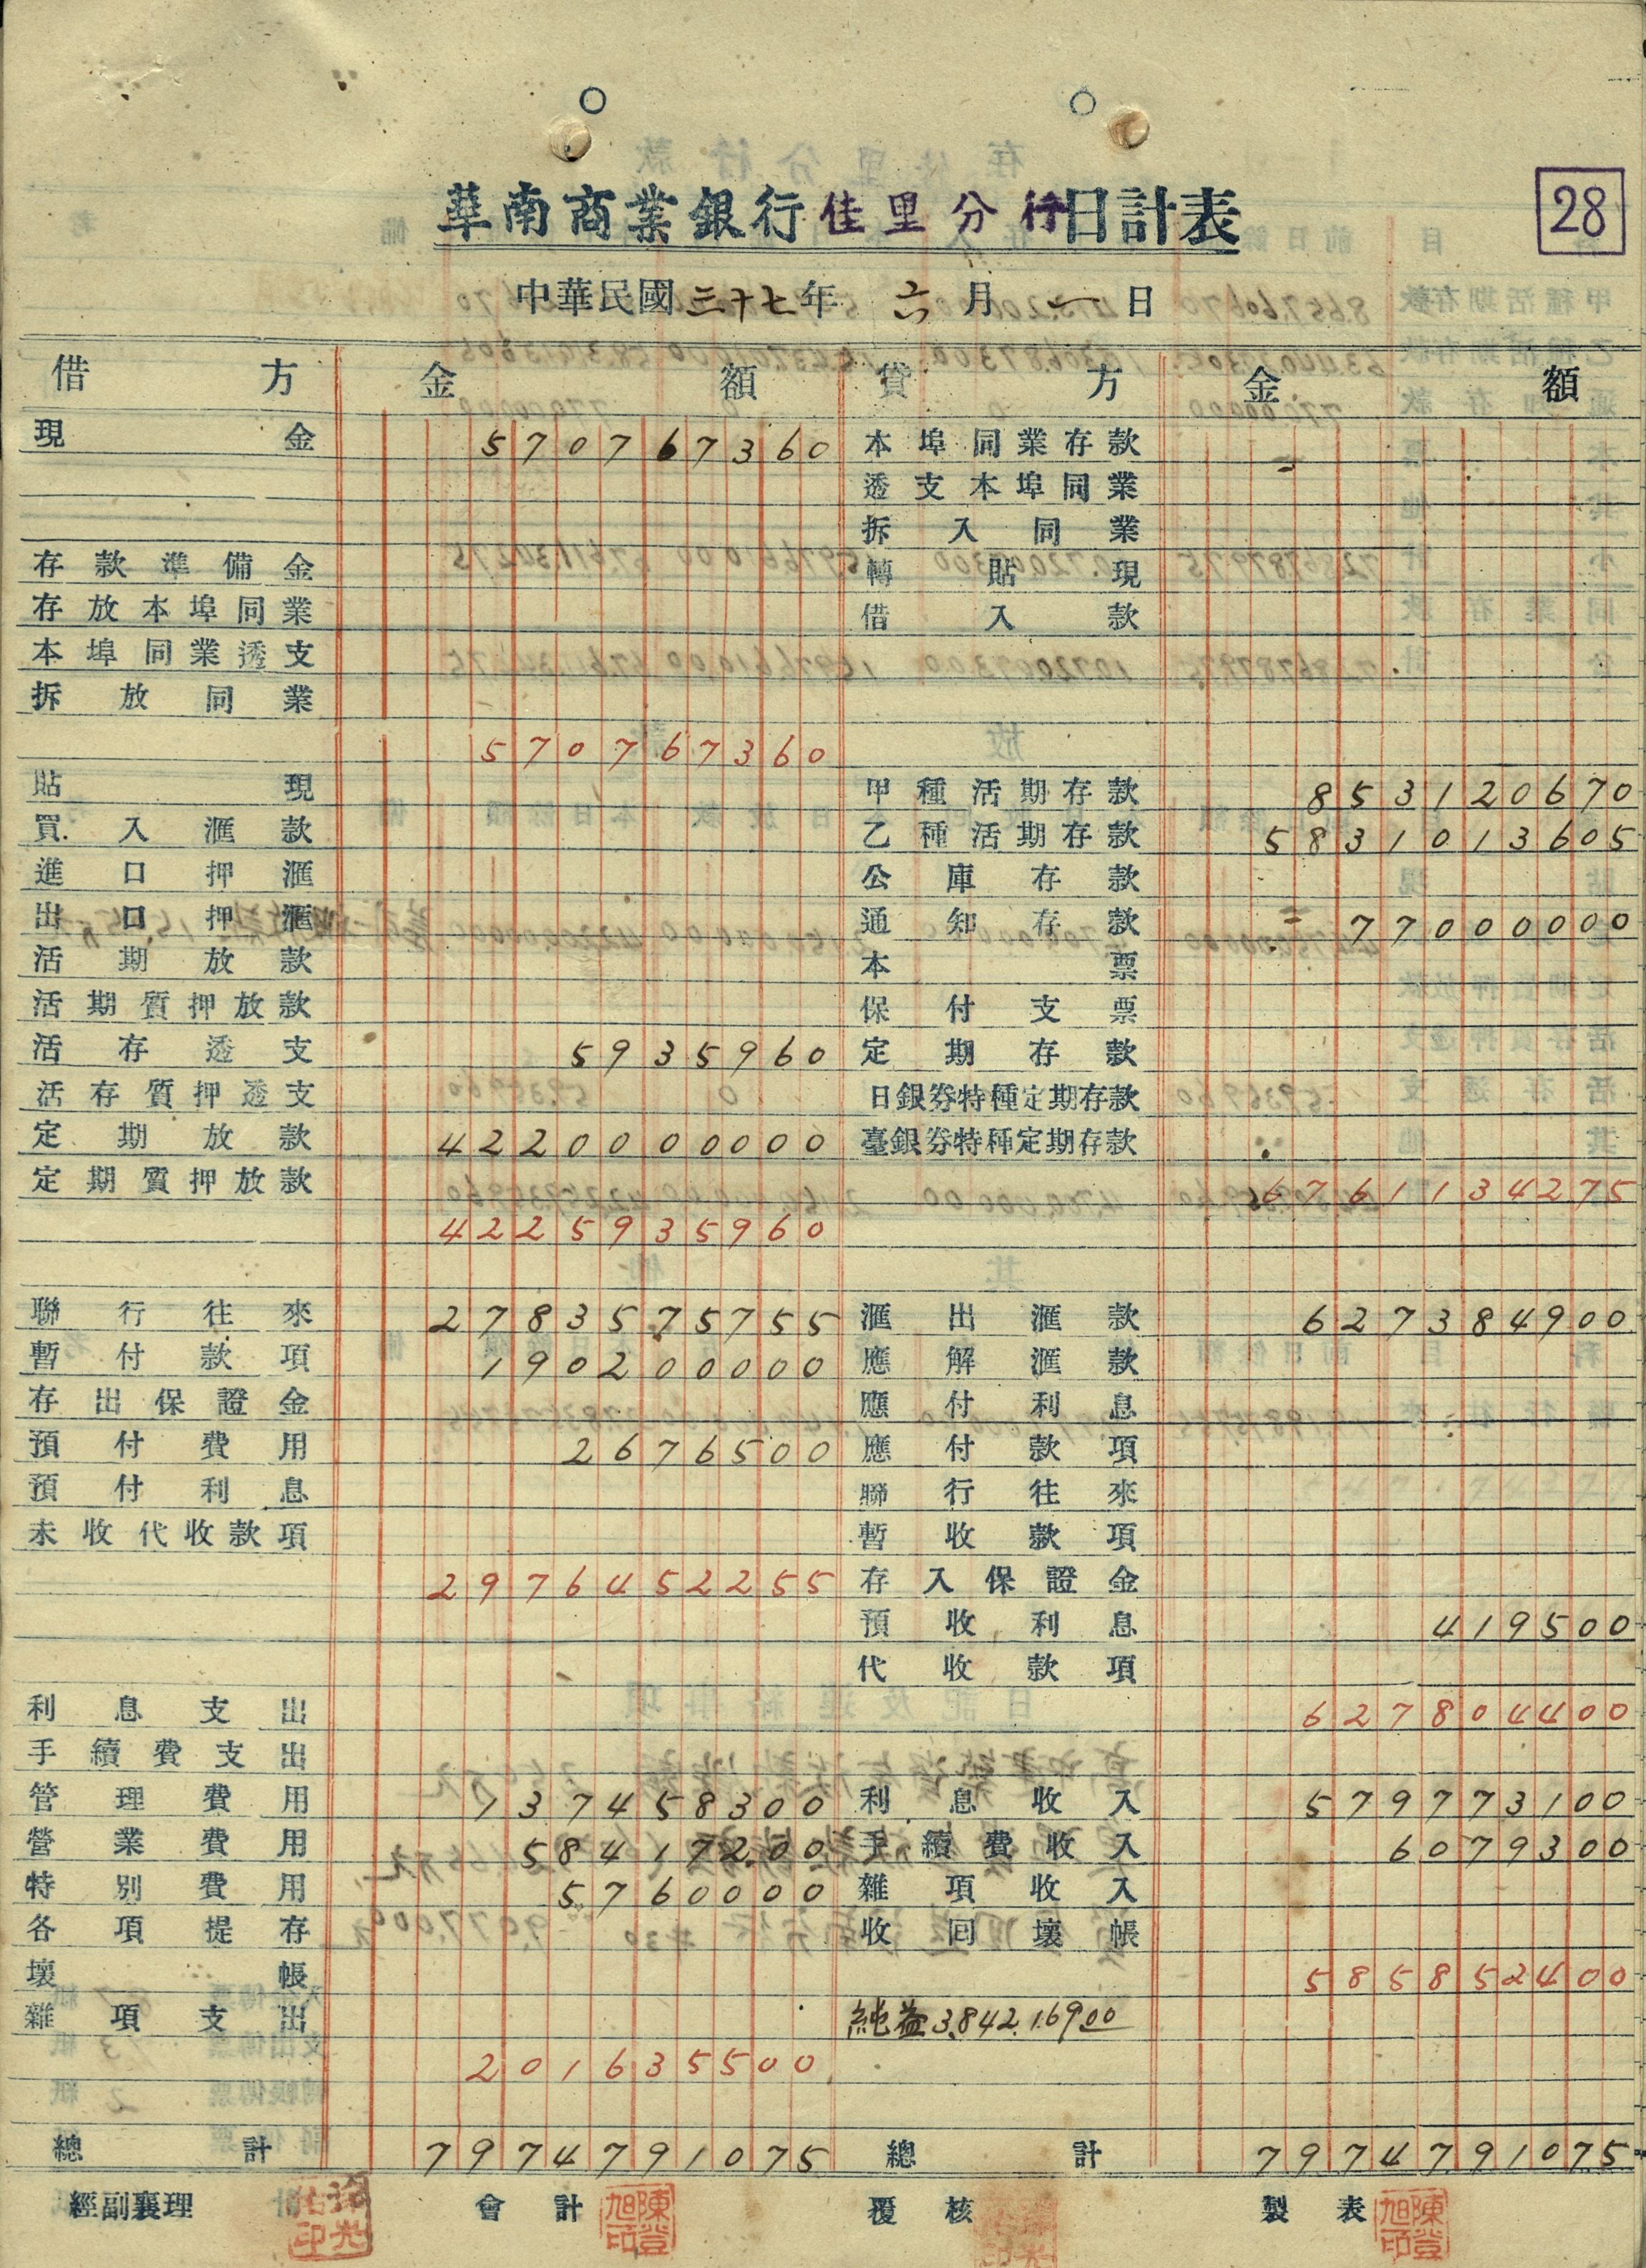 華南商業銀行佳里分行日計表
28
中華民國三十七年 六月 一日
借方 金額 貸方 金額
現金 570767360 本埠同業存款
透支本埠同業
拆入同業
存款準備金 轉貼現
存放本埠同業 借入款
本埠同業透支
拆放同業
570767360
貼現 甲種活期存款 853120670
買入滙款 乙種活期存款 5831013605
進口押滙 公庫存款
出口押滙 通知存款 77000000
活期放款 本票
活期質押放款 保付支票
活存透支 5935960 定期存款
活存質押透支 日銀券特種定期存款
定期放款 4220000000 臺銀券特種定期存款
定期質押放款 6761134275
4225935960
聯行往來 2783575755 滙出滙款 627384900
暫付款項 190200000 應解滙款
存出保證金 應付利息
預付費用 2676500 應付款項
預付利息 聯行往來
未收代收款項 暫收款項
2976452255 存入保證金
預收利息 419500
代收款項
利息支出 627804400
手續費支出
管理費用 137458300 利息收入 579773100
營業費用 58417200 手續費收入 6079300
特別費用 5760000 雜項收入
各項提存 收回壞帳
壞帳 585852400
雜項支出 純益3,842,169.00
201635500
總計 7974791075 總計 7974791075
經副襄理 會計 陳登旭印 覆核 製表 陳登旭印